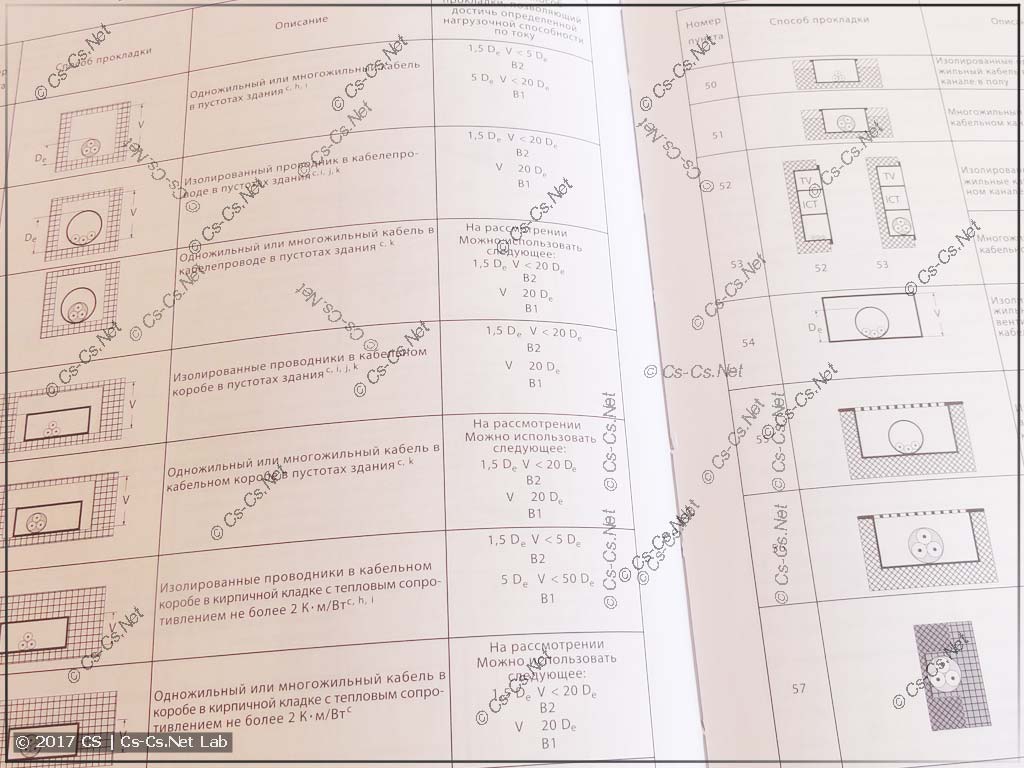 Способ прокладки
Описание
прокладки, позволяющий
достичь определенной
нагрузочной способности
по току
Одножильный или многожильный кабель
в пустотах здания c, h, i
1,5 De V < 5 De
B2
5 De V < 20 De
B1
V
De
Изолированный проводник в кабелепро-
воде в пустотах здания c, i, j, k
1,5 De V < 20 De
B2
V 20 De
B1
V
De
Одножильный или многожильный кабель в
кабелепроводе в пустотах здания c, k
На рассмотрении
Можно использовать
следующее:
1,5 De V < 20 De
B2
V 20 De
B1
Изолированные проводники в кабельном
коробе в пустотах здания c, i, j, k
1,5 De V < 20 De
B2
V 20 De
B1
V
Одножильный или многожильный кабель в
кабельном коробе в пустотах здания c, k
На рассмотрении
Можно использовать
следующее:
1,5 De V < 20 De
B2
V 20 De
B1
V
Изолированные проводники в кабельном
коробе в кирпичной кладке с тепловым сопро-
тивлением не более 2 К·м/Вт c, h, i
1,5 De V < 5 De
B2
5 De V < 50 De
B1
V
Одножильный или многожильный кабель в
коробе в кирпичной кладке с тепловым сопро-
тивлением не более 2 К·м/Вт c
На рассмотрении
Можно использовать
следующее:
De V < 20 De
B2
V 20 De
B1
V
Номер
пункта
Способ прокладки
50
51
52
TV
TV
ICT
ICT
53
52
53
54
De
V
57
© Cs-Cs.Net
© 2017 CS | Cs-Cs.Net Lab